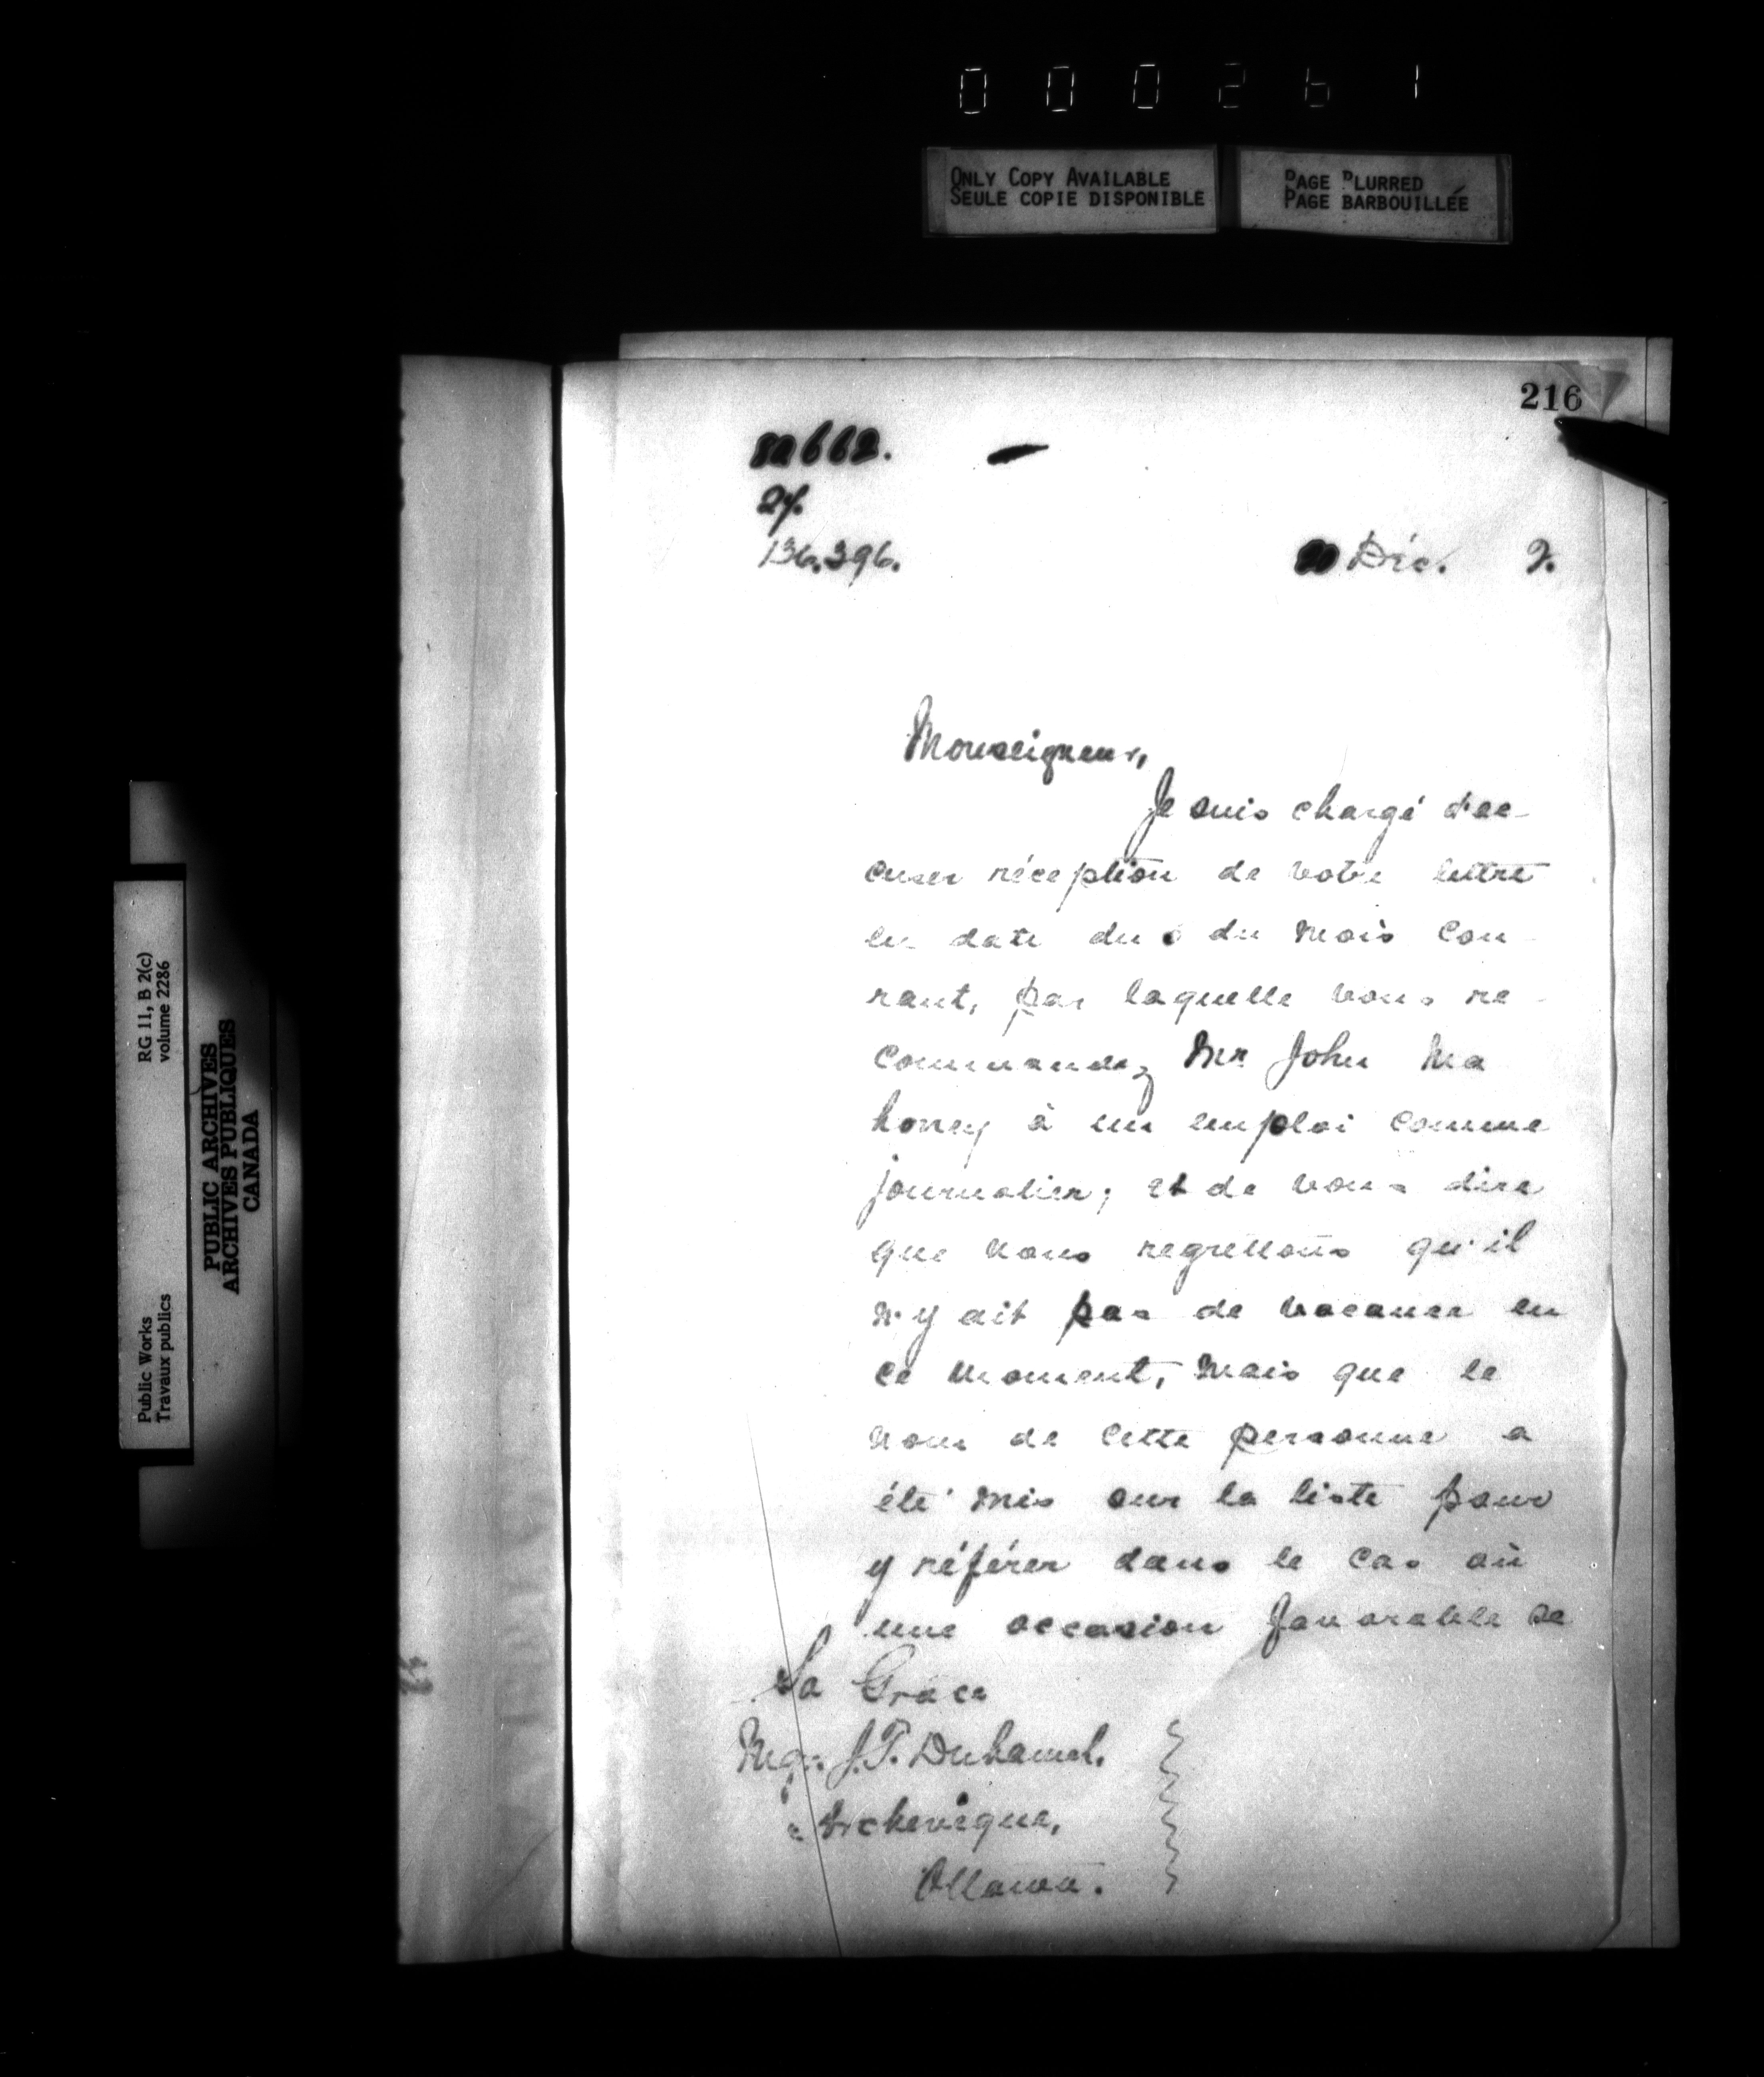 000261
ONLY COPY AVAILABLE
SEULE COPIE DISPONIBLE
PAGE BLURRED
PAGE BARBOUILLÉE
216
136.396.
20 Déc. 2.
Monseigneur,
Je suis chargé d'ac-
cuser réception de votre lettre
en date du du mois cou
rant, par laquelle vous re-
commandez Mr John Ma
honey à un emploi comme
journalier; et de vous dire
que nous regrettons qu'il
n'y ait pas de vacance en
ce moment, mais que le
nom de cette personne a
été mis sur la liste pour
y référer dans le cas où
une occasion favorable se
Sa Grace
Mgr. J.T. Duhamel.
Archevêque,
Ottawa.
RG 11, B 2(c)
volume 2286
Public Works
Travaux publics
PUBLIC ARCHIVES
ARCHIVES PUBLIQUES
CANADA